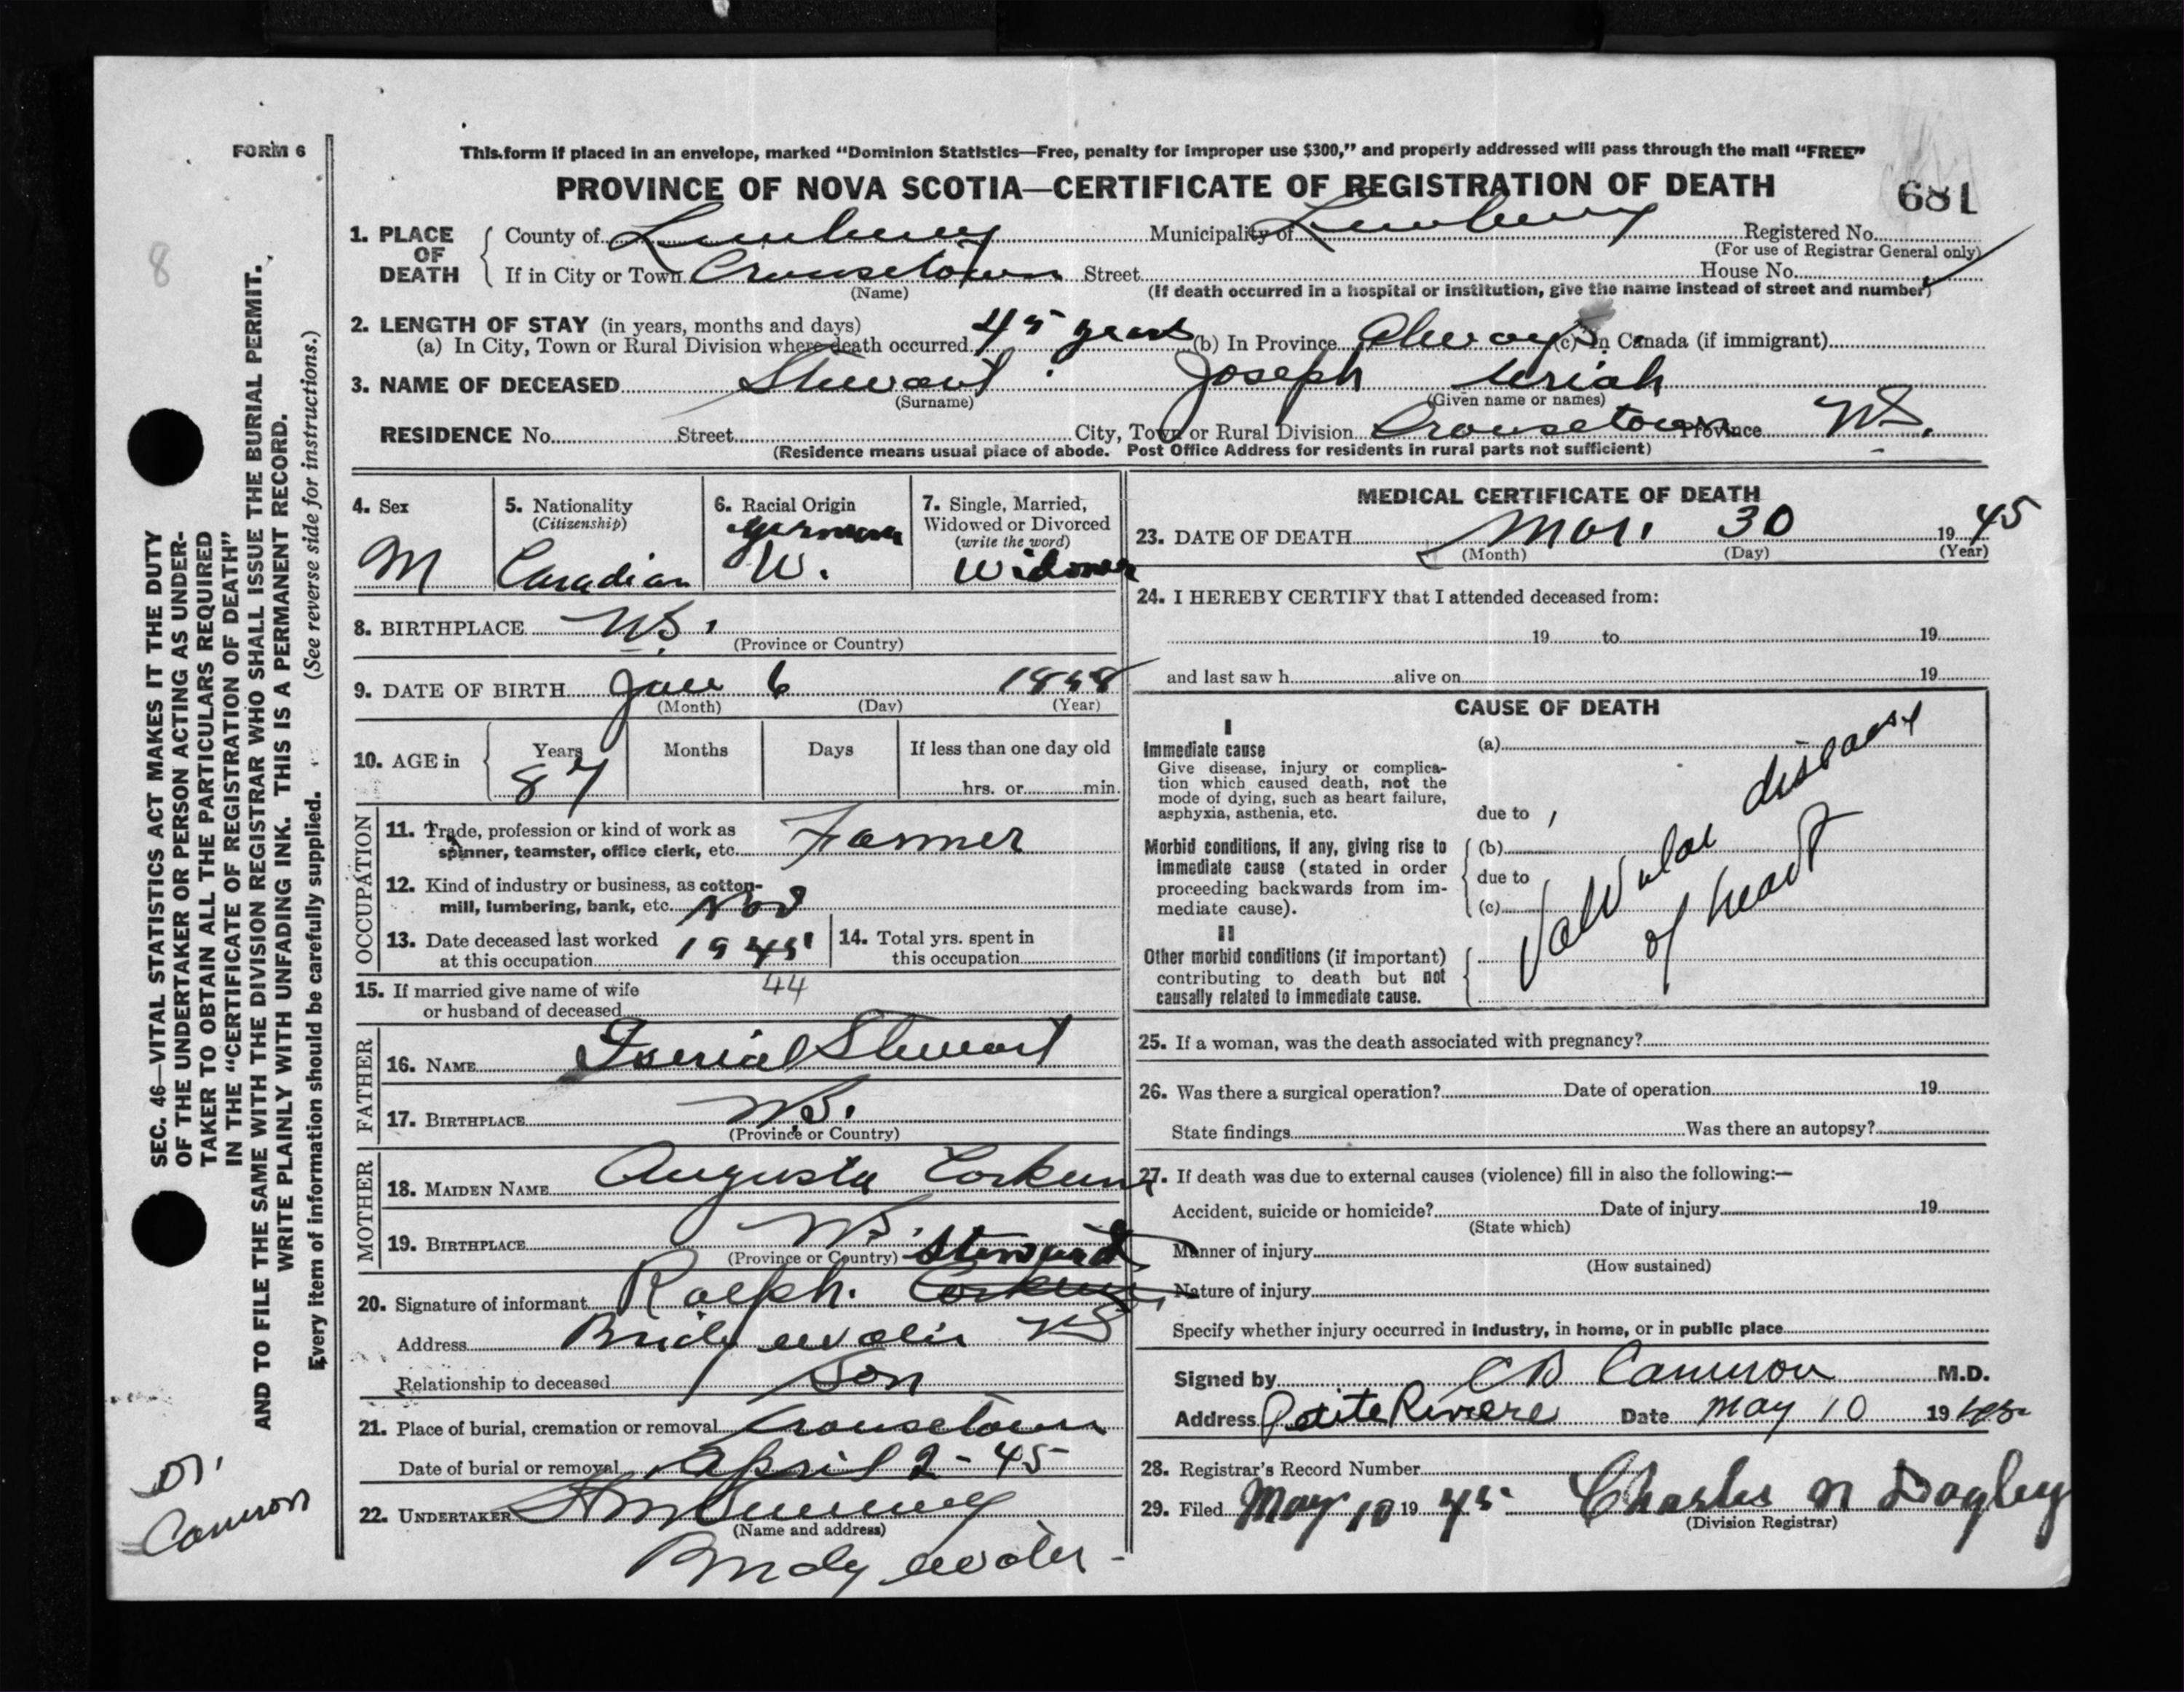 FORM 6
This form if placed in an envelope, marked “Dominion Statistics—Free, penalty for improper use $300,” and properly addressed will pass through the mail “FREE”
PROVINCE OF NOVA SCOTIA—CERTIFICATE OF REGISTRATION OF DEATH
681
1. PLACE OF DEATH { County of Lunenburg Municipality of Lunenburg Registered No.
(For use of Registrar General only)
If in City or Town Crousetown Street House No.
(Name) (If death occurred in a hospital or institution, give the name instead of street and number)
2. LENGTH OF STAY (in years, months and days)
(a) In City, Town or Rural Division where death occurred 45 years (b) In Province Always (c) In Canada (if immigrant)
3. NAME OF DECEASED Stewart Joseph Uriah
(Surname) (Given name or names)
RESIDENCE No. Street City, Town or Rural Division Crousetown Province N.S.
(Residence means usual place of abode. Post Office Address for residents in rural parts not sufficient)
4. Sex M
5. Nationality (Citizenship) Canadian
6. Racial Origin German W.
7. Single, Married, Widowed or Divorced (write the word) Widower
8. BIRTHPLACE N.S.
(Province or Country)
9. DATE OF BIRTH Jan 6 1858
(Month) (Day) (Year)
10. AGE in { Years 87 Months Days If less than one day old
hrs. or min.
OCCUPATION
11. Trade, profession or kind of work as
spinner, teamster, office clerk, etc. Farmer
12. Kind of industry or business, as cotton-
mill, lumbering, bank, etc.
13. Date deceased last worked
at this occupation 1945
44
14. Total yrs. spent in
this occupation
15. If married give name of wife
or husband of deceased
FATHER
16. NAME Stewart
17. BIRTHPLACE N.S.
(Province or Country)
MOTHER
18. MAIDEN NAME Augusta Corkum
19. BIRTHPLACE N.S.
(Province or Country) Steward
20. Signature of informant Ralph Corkum
Address Bridgewater NS
Relationship to deceased Son
21. Place of burial, cremation or removal Crousetown
Date of burial or removal April 2-45
22. UNDERTAKER
(Name and address)
Bridgewater
MEDICAL CERTIFICATE OF DEATH
23. DATE OF DEATH Mar. 30 1945
(Month) (Day) (Year)
24. I HEREBY CERTIFY that I attended deceased from:
19 to 19
and last saw h alive on 19
CAUSE OF DEATH
I
Immediate cause
Give disease, injury or complica-
tion which caused death, not the
mode of dying, such as heart failure,
asphyxia, asthenia, etc.
(a)
due to
Morbid conditions, if any, giving rise to
immediate cause (stated in order
proceeding backwards from im-
mediate cause).
(b)
due to
(c)
Valvular disease
of heart
II
Other morbid conditions (if important)
contributing to death but not
causally related to immediate cause.
25. If a woman, was the death associated with pregnancy?
26. Was there a surgical operation? Date of operation 19
State findings Was there an autopsy?
27. If death was due to external causes (violence) fill in also the following:—
Accident, suicide or homicide? Date of injury 19
(State which)
Manner of injury
(How sustained)
Nature of injury
Specify whether injury occurred in industry, in home, or in public place
Signed by CB Cameron M.D.
Address Petite Riviere Date May 10 1945
28. Registrar's Record Number
29. Filed May 10 1945 Charles N Dagley
(Division Registrar)
SEC. 46—VITAL STATISTICS ACT MAKES IT THE DUTY
OF THE UNDERTAKER OR PERSON ACTING AS UNDER-
TAKER TO OBTAIN ALL THE PARTICULARS REQUIRED
IN THE “CERTIFICATE OF REGISTRATION OF DEATH”
AND TO FILE THE SAME WITH THE DIVISION REGISTRAR WHO SHALL ISSUE THE BURIAL PERMIT.
WRITE PLAINLY WITH UNFADING INK. THIS IS A PERMANENT RECORD.
Every item of information should be carefully supplied. (See reverse side for instructions.)
8
Dr.
Cameron